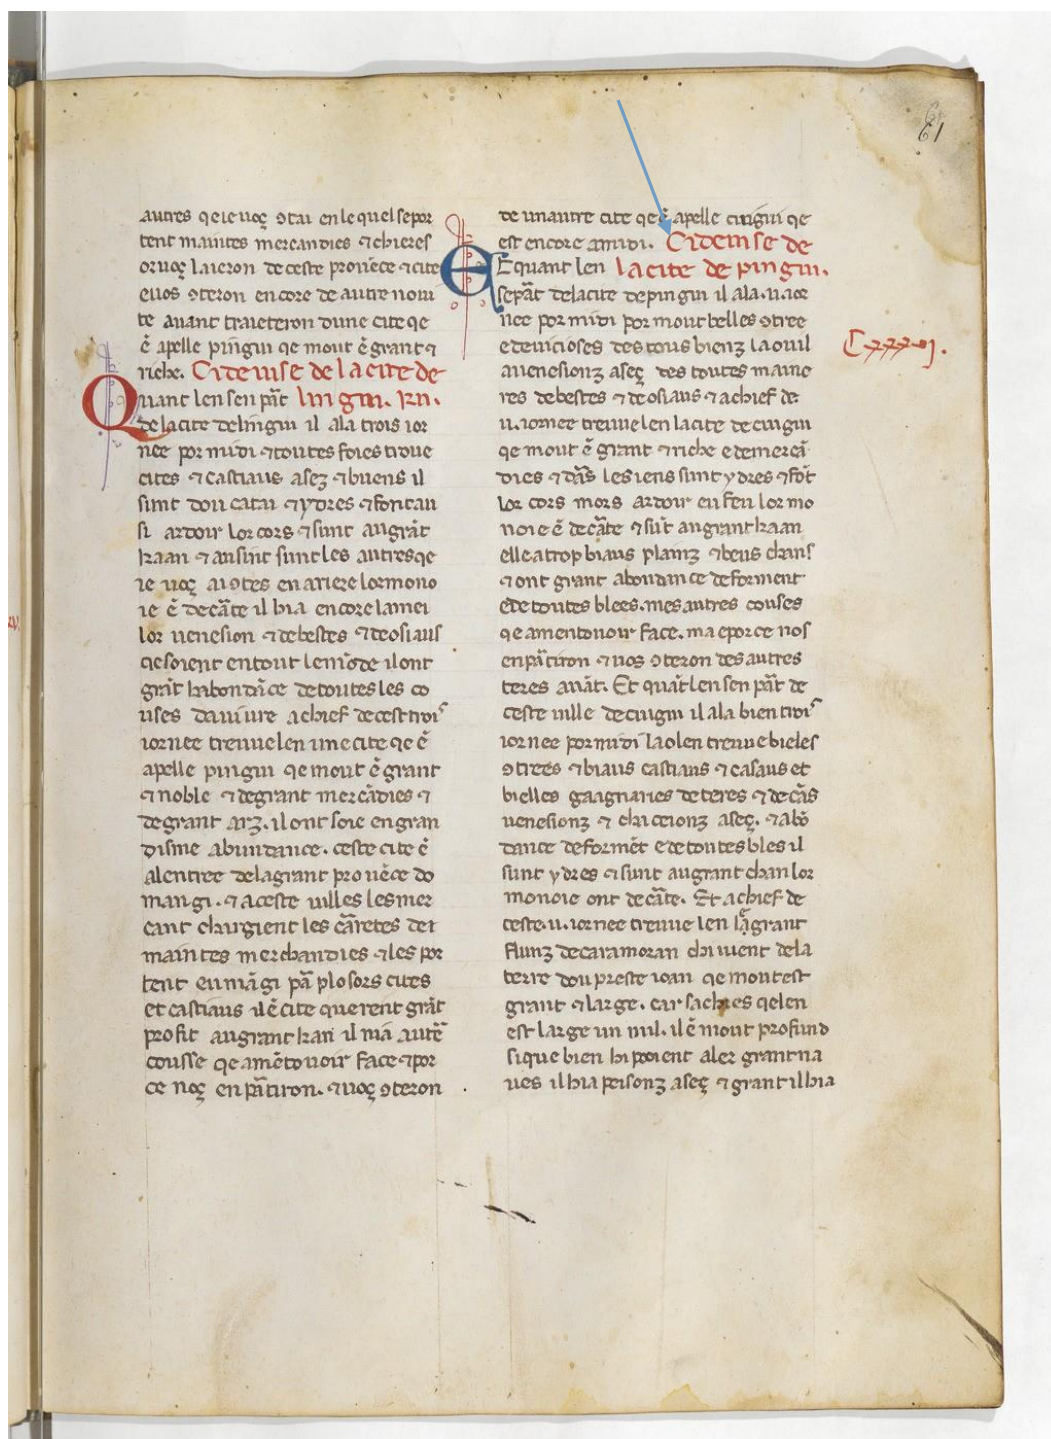 61
autres qe ie uoç 9tai en le quel se por
tent maintes mercandies ⁊ chieres
or uoç laieron de ceste prouẽce ⁊ cite
e uos 9teron encore de autre nom
te auant traieteron dune cite qe
ẽ apelle pingui qe mout ẽ grant ⁊
riche. Ci deuise de la cite de
Quant len sen pãt lingui.
de la cite de lingui il ala trois ior
nee por midi ⁊ toutes foies troue
cites ⁊ castiaus aseʒ ⁊ buens il
sunt dou catai ⁊ ydres ⁊ font au
si ardoir lor cors ⁊ sunt au grãt
kaan ⁊ ausint sunt les autres qe
ie uoç ai 9tes en ariere lor mono
ie ẽ de cãte il hia encore la mei
lor uenesion ⁊ de bestes ⁊ de osiaus
qe soient en tout le mõde il ont
grãt habondãce de toutes les co
uses da uiure a chief de cest trois
iornee treuue len une cite qe ẽ
apelle pingui qe mout ẽ grant
⁊ noble ⁊ de grant mercãdies ⁊
de grant arʒ. il ont soie en gran
disme abundance. ceste cite ẽ
al entree de la grant prouẽce do
mangi. ⁊ a ceste uilles les mer
cant chargient les cãretes de
maintes merchandies ⁊ les por
tent eu mãgi pã plosors cites
et castiaus il ẽ cite qu erent grãt
profit au grant kan il nia autre
cousse qe amẽtouoir face ⁊ por
ce noç en pãtiron. ⁊ uoç 9teron
de un autre cite qe ẽ apelle cuigui qe
est encore a midi. Ci deuise de
E quant len la cite de pingui.
se pãt de la cite de pingui il ala .ii. ior
nee por midi por mout belles 9tree
e deuicioses des tous bienʒ la o il
a uenesionʒ aseç des toutes maine
res de bestes ⁊ de osiaus ⁊ a chief de
.ii. iornee treuue len la cite de cuigui
qe mout ẽ grant ⁊ riche e de mercã
dies ⁊ dãs les iens sunt ydres ⁊ fõt
lor cors mors ardoir eu feu lor mo
noie ẽ de cãte ⁊ sũt au grant kaan
elle a trop biaus plainʒ ⁊ beus chans
⁊ ont grant abondance de forment
e de toutes blees. mes autres couses
qe amentouoir face. ma e por ce nos
en pãtiron ⁊ uos 9teron des autres
teres auãt. Et quãt len sen pãt de
ceste uille de cuigui il ala bien trois
iornee por midi la o len treuue bieles
9trees ⁊ biaus castiaus ⁊ casaus et
bielles gaagnaries de teres ⁊ de cãs
uenesionʒ ⁊ chaceionʒ aseç. ⁊ abõ
dance de formẽt e de toutes bles il
sunt ydres ⁊ sunt au grant chan lor
monoie ont de cãte. Et a chief de
ceste .ii. iornee treuue len le grant
flunʒ de caramoran chi uient de la
terre dou preste ioan qe mout est
grant ⁊ large. car saches qe len
est large un mil. il ẽ mout profund
si que bien hi poient aler grant na
ues il hia peisonʒ aseç ⁊ grant il hia